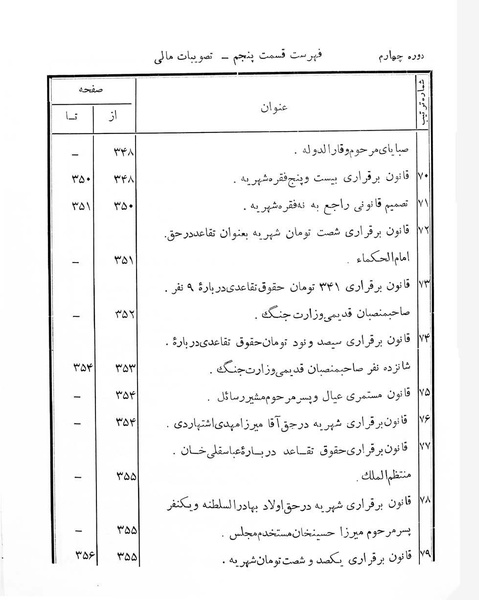 دوره چهارم فهرست قسمت پنجم – تصویبات مالی
شماره ترتیب عنوان صفحه
از تا
صبایای مرحوم وقارالدوله . ۳۴۸ –
۷۰ قانون برقراری بیست وپنج فقره شهریه . ۳۴۸ ۳۵۰
۷۱ تصمیم قانونی راجع به نه فقره شهریه . ۳۵۰ ۳۵۱
۷۲ قانون برقراری شصت تومان شهریه بعنوان تقاعد درحق.
امام الحکماء . ۳۵۱ –
۷۳ قانون برقراری ۳۴۱ تومان حقوق تقاعدی دربارهٔ ۹ نفر .
صاحبمنصبان قدیمی وزارت جنگ . ۳۵۲ –
۷۴ قانون برقراری سیصد ونود تومان حقوق تقاعدی درباره .
شانزده نفر صاحبمنصبان قدیمی وزارت جنگ . ۳۵۳ ۳۵۴
۷۵ قانون مستمری عیال وپسر مرحوم مشیر رسائل . ۳۵۴ –
۷۶ قانون برقراری شهریه درحق آقا میرزا مهدی اشتهاردی . ۳۵۴ –
۷۷ قانون برقراری حقوق تقاعد دربارهٔ عباسقلی خان .
منتظم الملک . ۳۵۵ –
۷۸ قانون برقراری شهریه درحق اولاد بهادرالسلطنه ویکنفر
پسر مرحوم میرزا حسینخان مستخدم مجلس . ۳۵۵ –
۷۹ قانون برقراری یکصد و شصت تومان شهریه . ۳۵۵ ۳۵۶